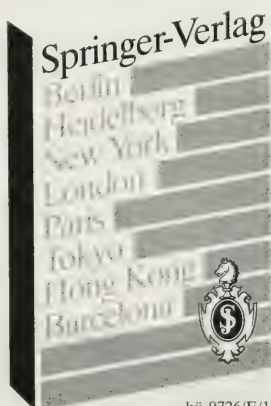 Springer-Verlag
Berlin
Heidelberg
New York
London
Paris
Tokyo
Hong Kong
Barcelona